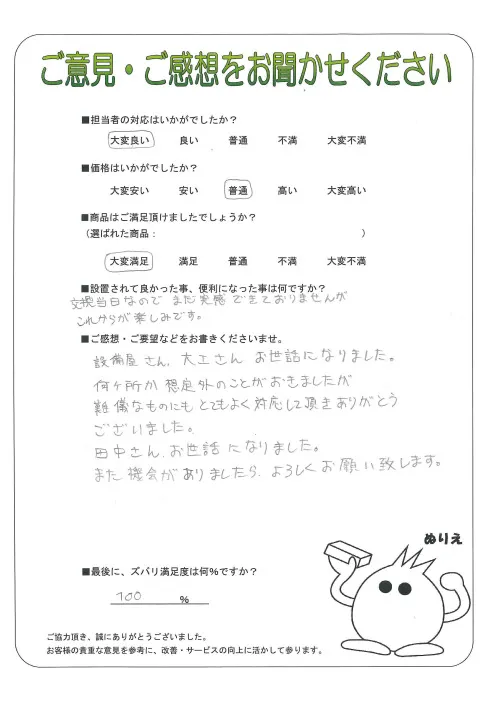 ご意見・ご感想をお聞かせください
■担当者の対応はいかがでしたか？
大変良い 良い 普通 不満 大変不満
■価格はいかがでしたか？
大変安い 安い 普通 高い 大変高い
■商品はご満足頂けましたでしょうか？
（選ばれた商品： ）
大変満足 満足 普通 不満 大変不満
■設置されて良かった事、便利になった事は何ですか？
交換当日なので まだ実感 できておりませんが
これからが楽しみです。
■ご感想・ご要望などをお書きくださいませ。
設備屋さん、大工さん お世話になりました。
何ヶ所か 想定外のことがおきましたが
難儀なものにも とてもよく対応して頂きありがとう
ございました。
田中さん、お世話になりました。
また 機会がありましたら、よろしくお願い致します。
ぬりえ
■最後に、ズバリ満足度は何％ですか？
100 ％
ご協力頂き、誠にありがとうございました。
お客様の貴重な意見を参考に、改善・サービスの向上に活かして参ります。